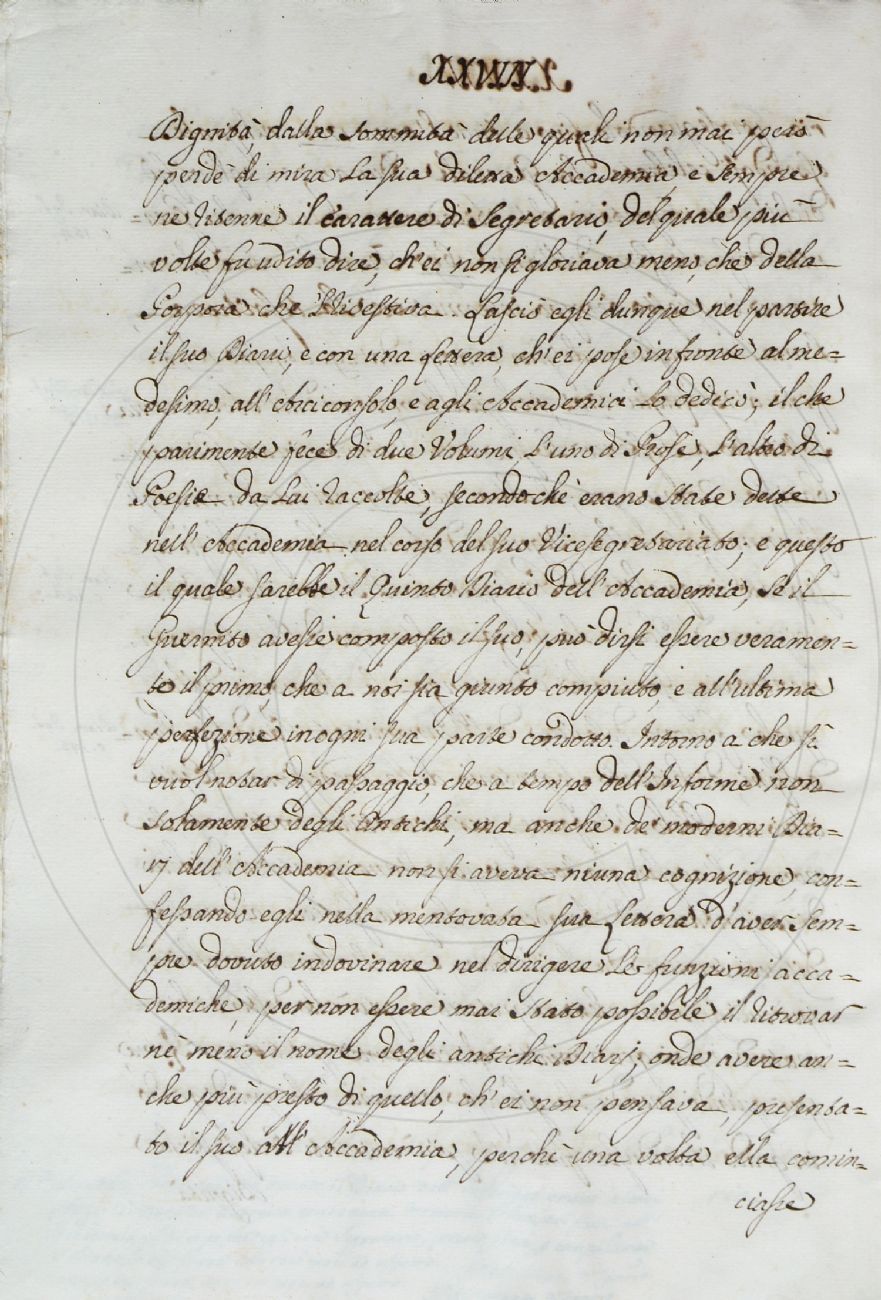 Dignità, dalla sommità delle quali non mai però
perdè di mira la sua diletta Accademia, e sempre
ne ritenne il carattere di Segretario, del quale più
volte fu udito dire, ch'ei non si gloriava meno, che della
Porpora che l'rivestiva. Lasciò egli dunque nel partire
il suo Diario, e con una Lettera, ch'ei pose in fronte al me=
desimo, all'Arciconsolo, e agli Accademici lo dedicò; il che
parimente fece di due Volumi, l'uno di Prose, l'altro di
Poesie da lui raccolte, secondochè erano state dette
nell'Accademia nel corso del suo Vicesegretariato; e questo
il quale sarebbe il Quinto Diario dell'Accademia, se il
Guernito avesse composto il suo, può dirsi essere veramen=
te il primo, che a noi sia giunto compiuto, e all'ultima
perfezione in ogni sua parte condotto. Intorno a che si
vuol notar di passaggio, che a tempo dell'Informe non
solamente degli antichi, ma anche de' moderni Dia=
rj dell'Accademia non si aveva niuna cognizione, con=
fessando egli nella mentovata sua Lettera d'aver sem=
pre dovuto indovinare nel dirigere le funzioni acca=
demiche, per non essere mai stato possibile il ritrovar
nè meno il nome degli antichi Diarj; onde avere an=
che più presto di quello, ch'ei non pensava, presenta=
to il suo all'Accademia, perchè una volta ella comin=
ciasse